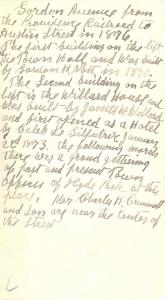 Gordon Avenue from
the Providence Railroad to
Austin Street in 1876.
The first building on the left
the Town Hall and was built
by Gordon H. Nott, in 1870.
The Second building on the
left is the Willard House and
was built by James Willard
and first opened as a Hotel
by Caleb Le Gilpatric January
22d 1873. the following month
there was a grand gathering
of past and present Town
officers of Hyde Park at the
place. Mr Charles H. Crummell
and Son are near the Center of
the Street